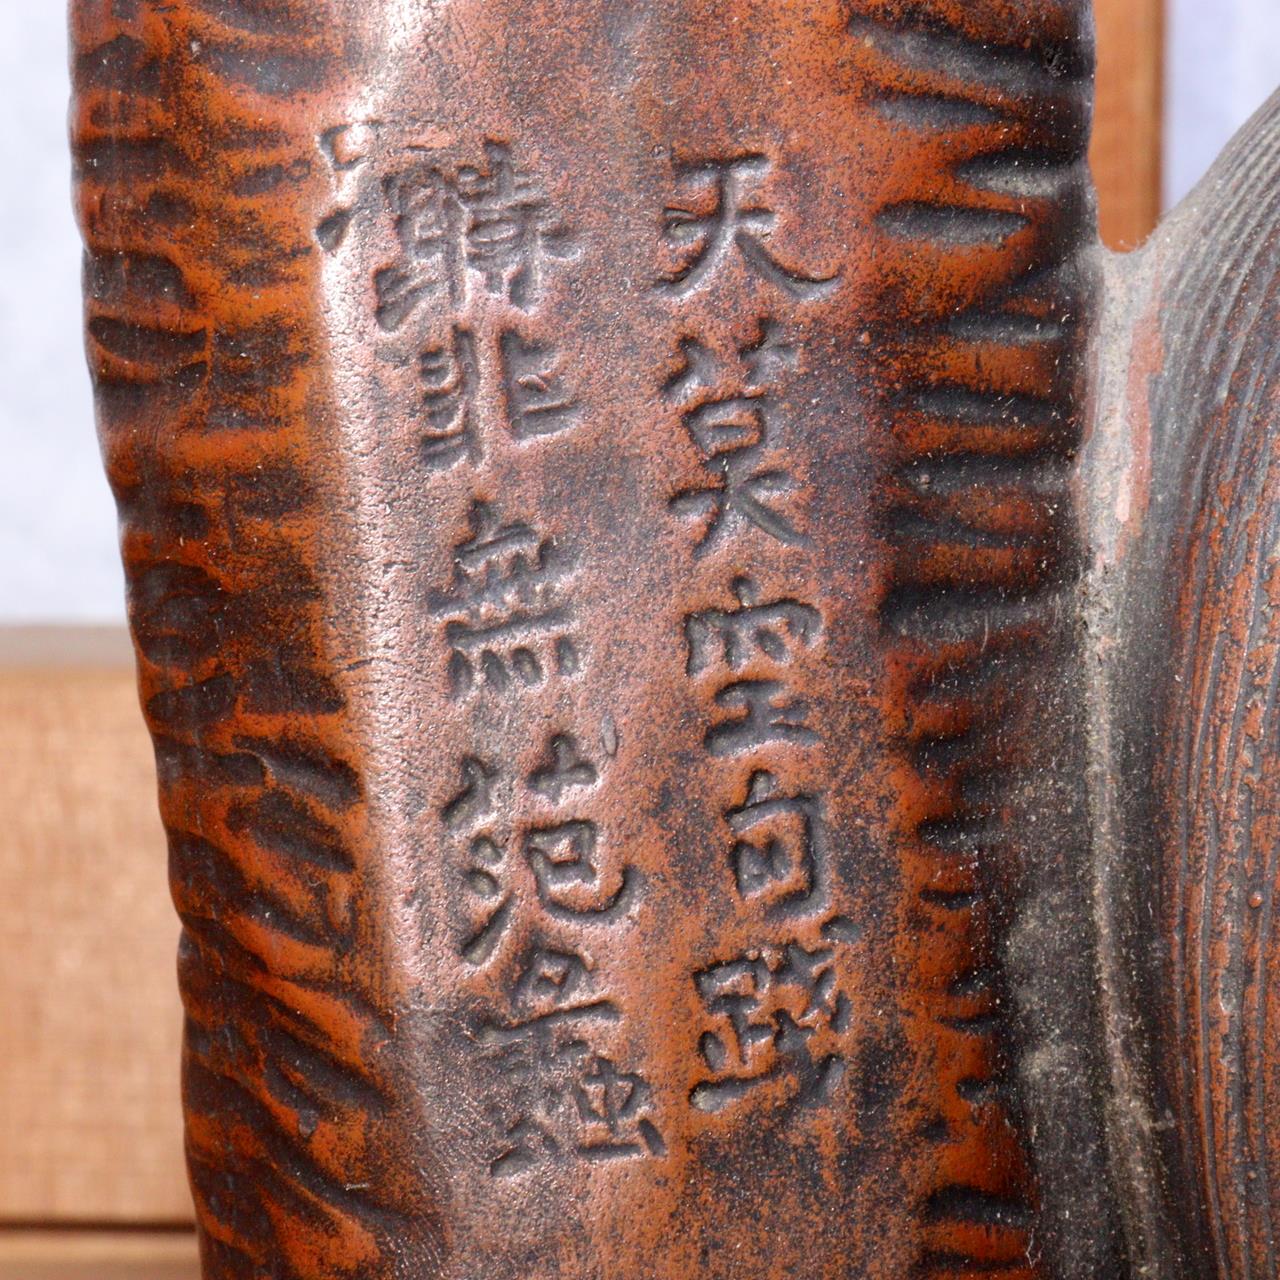 天莫空句踐
時非無范蠡